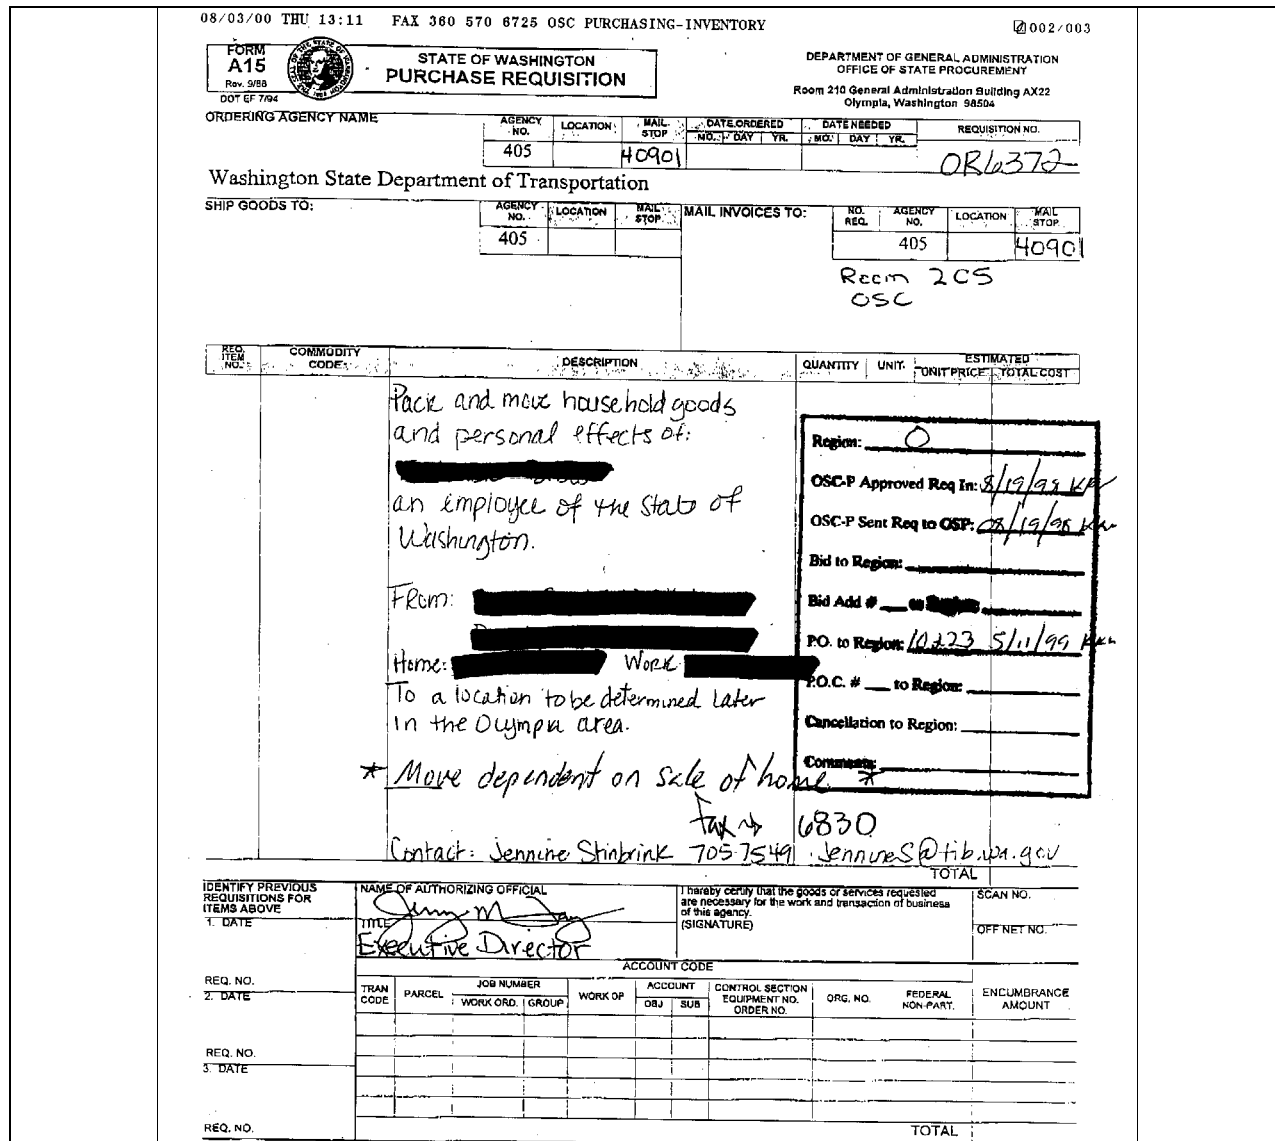 08/03/00 THU 13:11 FAX 360 570 6725 OSC PURCHASING-INVENTORY 002/003
FORM
A15
Rev. 9/88
DOT EF 7/94
STATE OF WASHINGTON
PURCHASE REQUISITION
DEPARTMENT OF GENERAL ADMINISTRATION
OFFICE OF STATE PROCUREMENT
Room 210 General Administration Building AX22
Olympia, Washington 98504
ORDERING AGENCY NAME
AGENCY NO. LOCATION MAIL STOP DATE ORDERED MO. DAY YR. DATE NEEDED MO. DAY YR. REQUISITION NO.
405 40901 OR6372
Washington State Department of Transportation
SHIP GOODS TO: AGENCY NO. LOCATION MAIL STOP MAIL INVOICES TO: NO. REQ. AGENCY NO. LOCATION MAIL STOP
405 405 40901
Room 2C5
OSC
REQ. ITEM NO. COMMODITY CODE DESCRIPTION QUANTITY UNIT ESTIMATED UNIT PRICE TOTAL COST
Pack and move household goods
and personal effects of:
an employee of the State of
Washington.
From:
Home: Work
To a location to be determined later
in the Olympia area.
* Move dependent on sale of home *
Region: O
OSC-P Approved Req In: 8/19/98
OSC-P Sent Req to OSP: 08/19/98
Bid to Region:
Bid Add #
P.O. to Region: 10223 5/11/99
P.O.C. # to Region:
Cancellation to Region:
Comments:
Fax → 6830
Contact: Jennine Stinbrink 705-7549 JennineS@tib.wa.gov
TOTAL
IDENTIFY PREVIOUS
REQUISITIONS FOR
ITEMS ABOVE
1. DATE
REQ. NO.
2. DATE
REQ. NO.
3. DATE
REQ. NO.
NAME OF AUTHORIZING OFFICIAL
TITLE
Executive Director
I hereby certify that the goods or services requested
are necessary for the work and transaction of business
of this agency.
(SIGNATURE)
SCAN NO.
OFF NET NO.
ACCOUNT CODE
TRAN CODE PARCEL JOB NUMBER WORK ORD. GROUP WORK OP ACCOUNT OBJ SUB CONTROL SECTION EQUIPMENT NO. ORDER NO. ORG. NO. FEDERAL NON-PART. ENCUMBRANCE AMOUNT
TOTAL